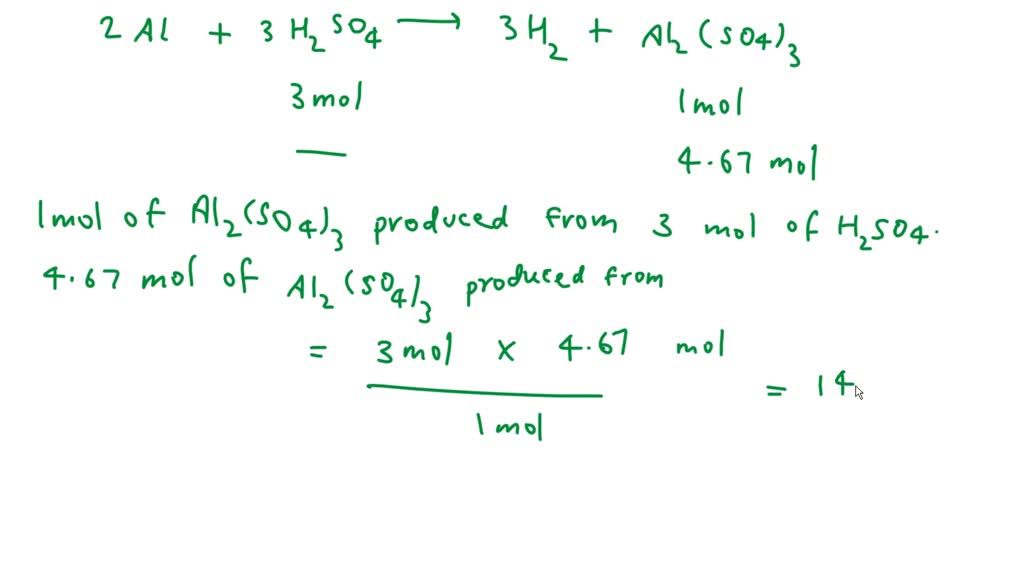 2 Al + 3 H₂SO₄ ⟶ 3H₂ + Al₂(SO₄)₃
3 mol 1 mol
4.67 mol
1 mol of Al₂(SO₄)₃ produced from 3 mol of H₂SO₄.
4.67 mol of Al₂(SO₄)₃ produced from
= 3 mol × 4.67 mol
= 14
1 mol